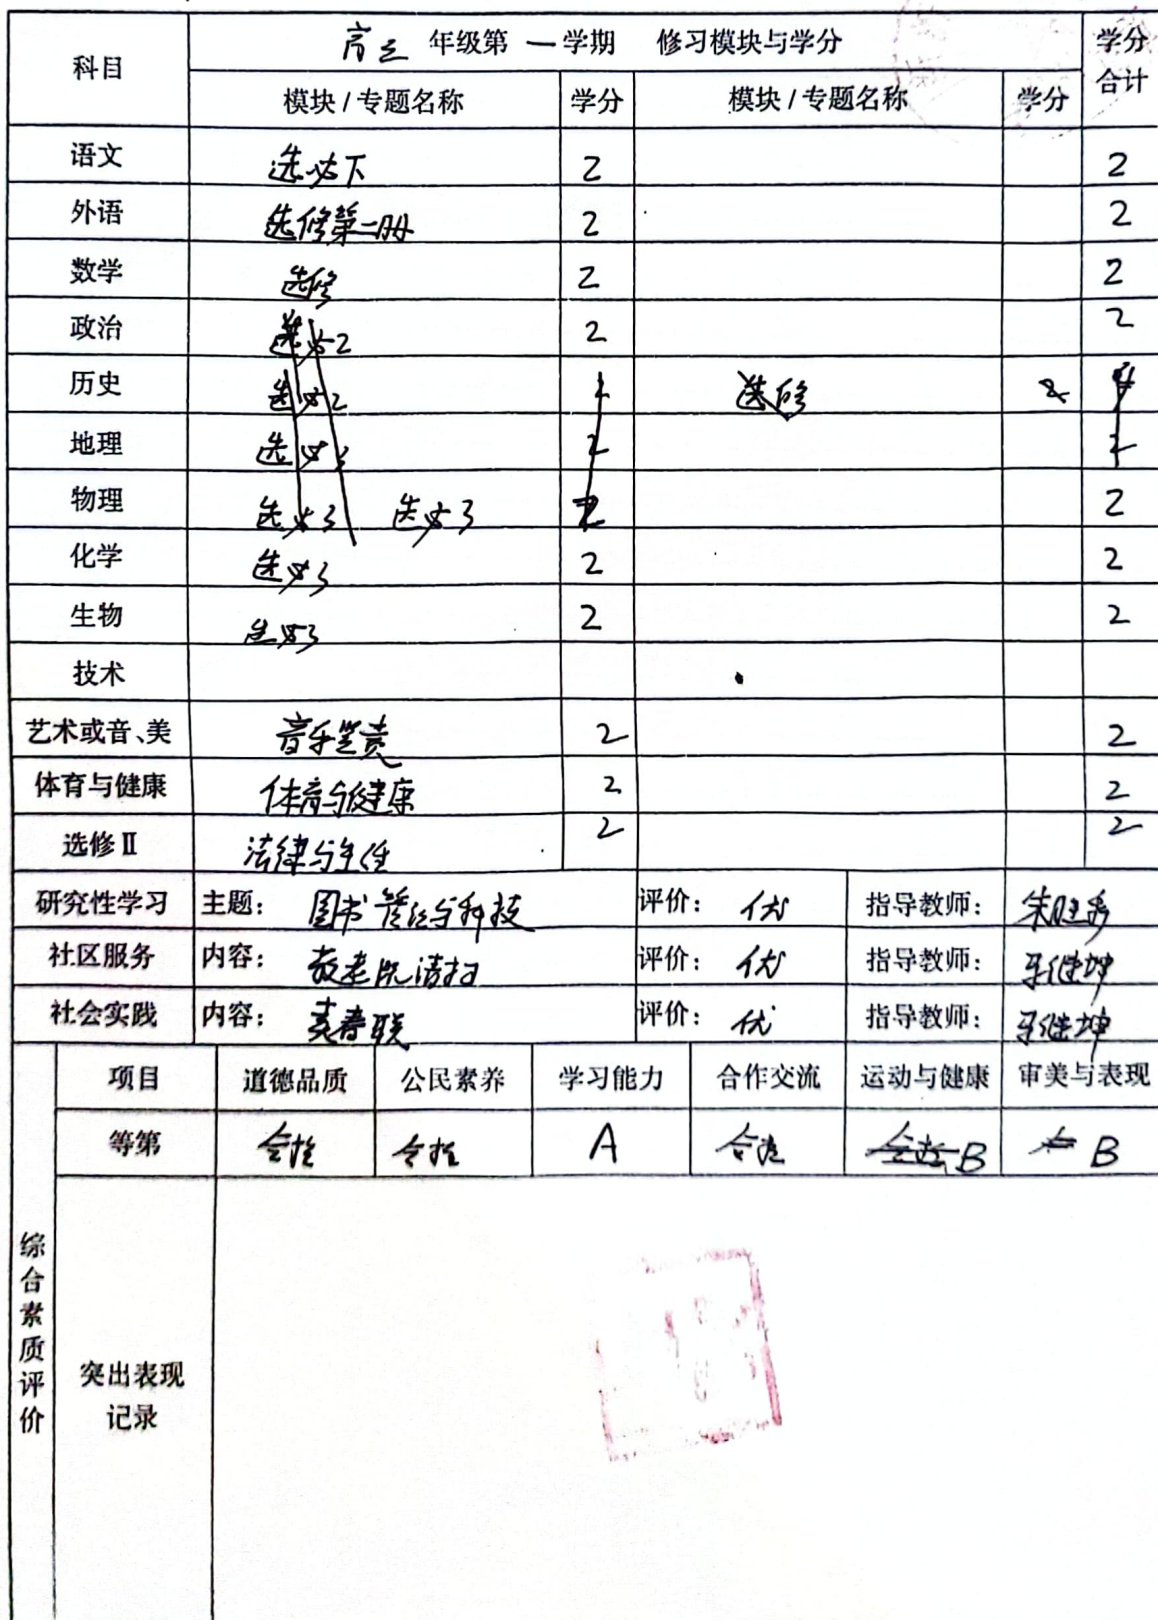 科目 高三 年级第 一 学期 修习模块与学分 学分合计
模块 / 专题名称 学分 模块 / 专题名称 学分
语文 选必下 2 2
外语 选修第二册 2 2
数学 选修 2 2
政治 选必2 2 2
历史 选必2 选修 2
地理 选必 2 2
物理 选必3 选必3 2 2
化学 选必3 2 2
生物 选必3 2 2
技术
艺术或音、美 音乐鉴赏 2 2
体育与健康 体育与健康 2 2
选修Ⅱ 法律与生活 2 2
研究性学习 主题： 图书管理与科技 评价： 优 指导教师： 朱
社区服务 内容： 敬老院清扫 评价： 优 指导教师： 继坤
社会实践 内容： 卖春联 评价： 优 指导教师： 继坤
综合素质评价
项目 道德品质 公民素养 学习能力 合作交流 运动与健康 审美与表现
等第 合格 合格 A 合格 合格 B B
突出表现
记录